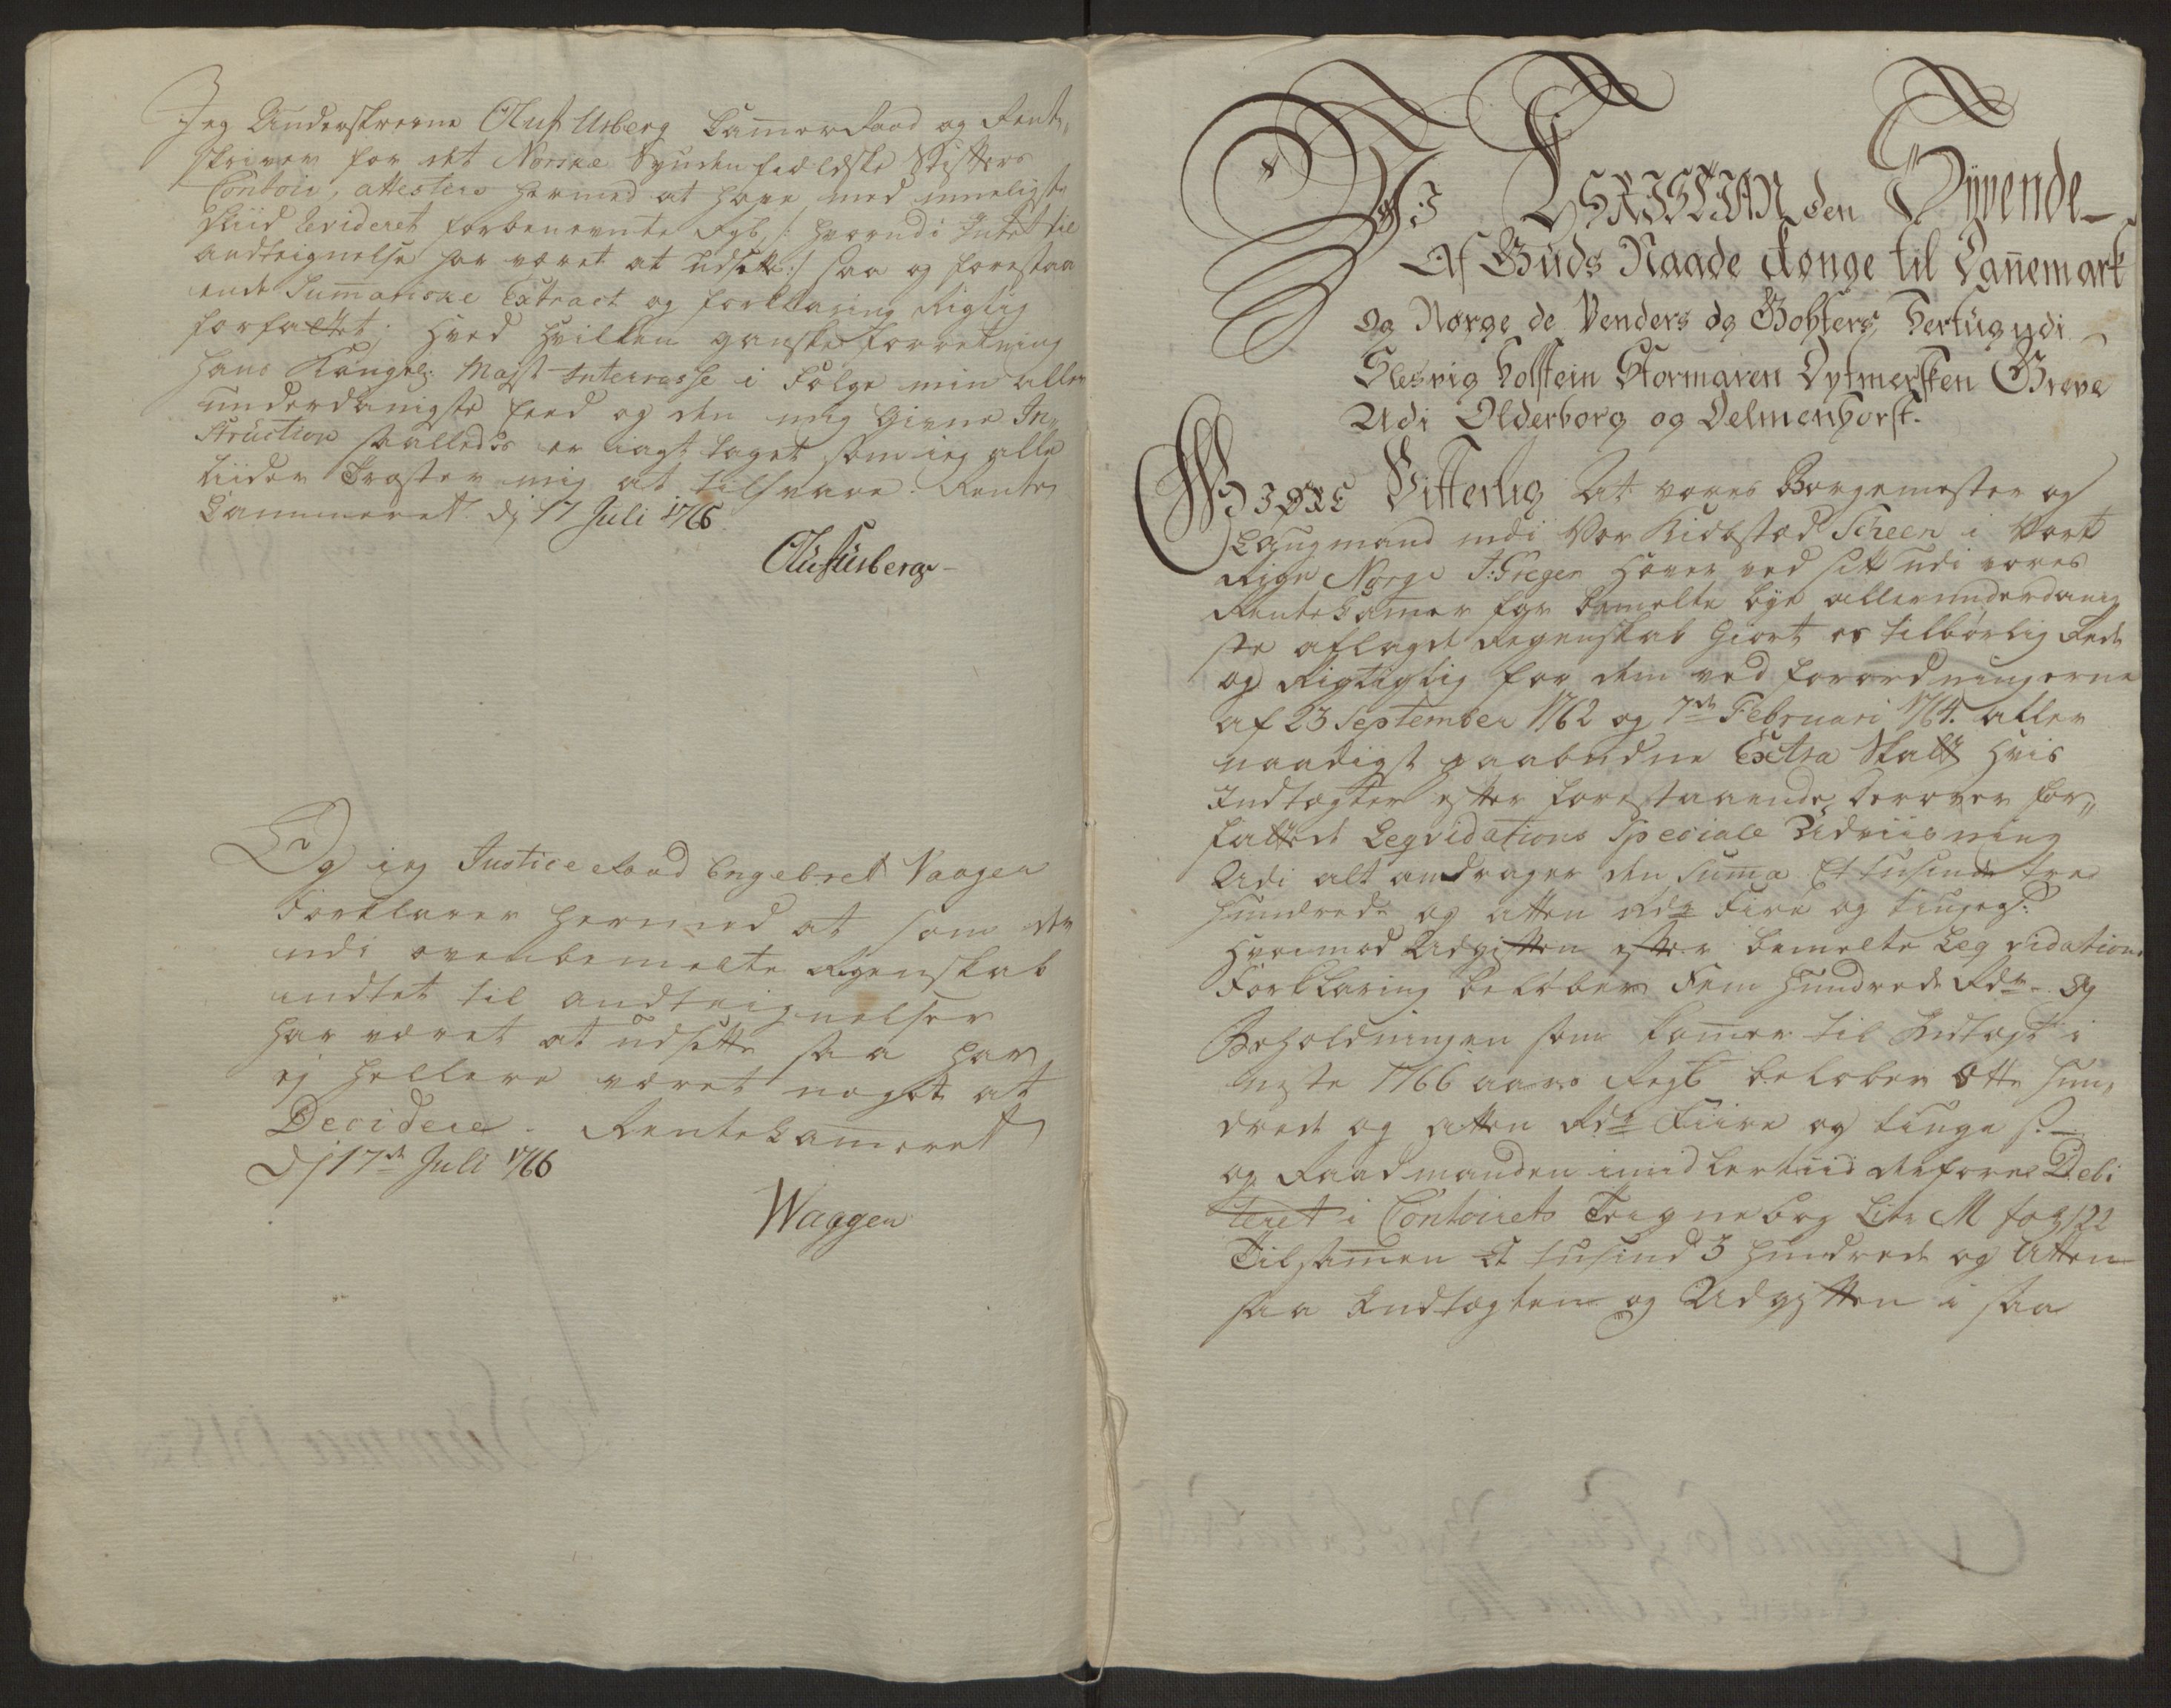 Jeg Underskrevne Oluf Usberg Cammer Raad og Rent„
skriver for det Norske Synden fieldske Stifters
Contoir, attesterer hermed at have med mueligste
Fliid Revideret forbenevnte Rgb, /: hvorudi Intet til
andteignelse har været at Udsette :/ saa og forestaa
ende Summariske Extract og forklaring Rigtig
forfattet; Hved hvilken ganske forretning
Hans Kongel: Mayst Interresse i Følge min aller
underdanigste Eed og den mig Givne In„
struction saaledes er iagt taget som ieg alle
tiider Trøster mig at tilsvare. Rente
Cammeret Dj 17 Juli 1766.
Oluf Usberg
Og ieg Justice Raad Engebret Vaagen
Forklarer hermed at som der
udi ovenbemelte Regenskab
indtet til andteignelser
har været at udsette saa har
ej hellere været noget at
Decidere. Rentekammeret
Dj 17de Juli 1766
Waggen
Wi CHRISTIAN den Syvende
Af Guds Naade Konge til Dannemark
og Norge de Venders og Gothers, Hertug udi
Slesvig Holstein Stormaren Dytmersken Greve
Udi Olderborg og Delmenhorst.
Giøre Vitterlig At vores Borgemester og
Laugmand udi Vor Kiøbstæd Scheen i Vort
Rige Norge J: Greger Haver ved sit udi vores
Rentekamer for bemelte bye allerunderdanig
ste aflagde Regenskab Giort os tilbørlig Rede
og Rigtighed for dem ved forordningerne
af 23 September 1762 og 7de Februari 1764. aller
naadigst paabudne Extra Skatt Hvis
Indtægter efter forestaaende derover for„
fattede Leqvidations Speciale Udviisning
Udi alt andrager den Suma Et tusinde tre
hundrede og atten rdr Fire og tiuge s:
Hvorimod Udgiften efter bemelte Leqvidations
Forklaring beløber Fem Hundrede Rdr. Og
Beholdningen som komer til Indtægt i
neste 1766 aars Regb beløber Otte hun„
drede og atten Rdr Fiire og tiuge s.
og Raadmanden imidlertiid derfore Debi
teret i Contoirets Teignebog Litr M fol 522
Tilsamen Et tusind 3 Hundrede og Atten
saa Indtægten og Udgiften i saa